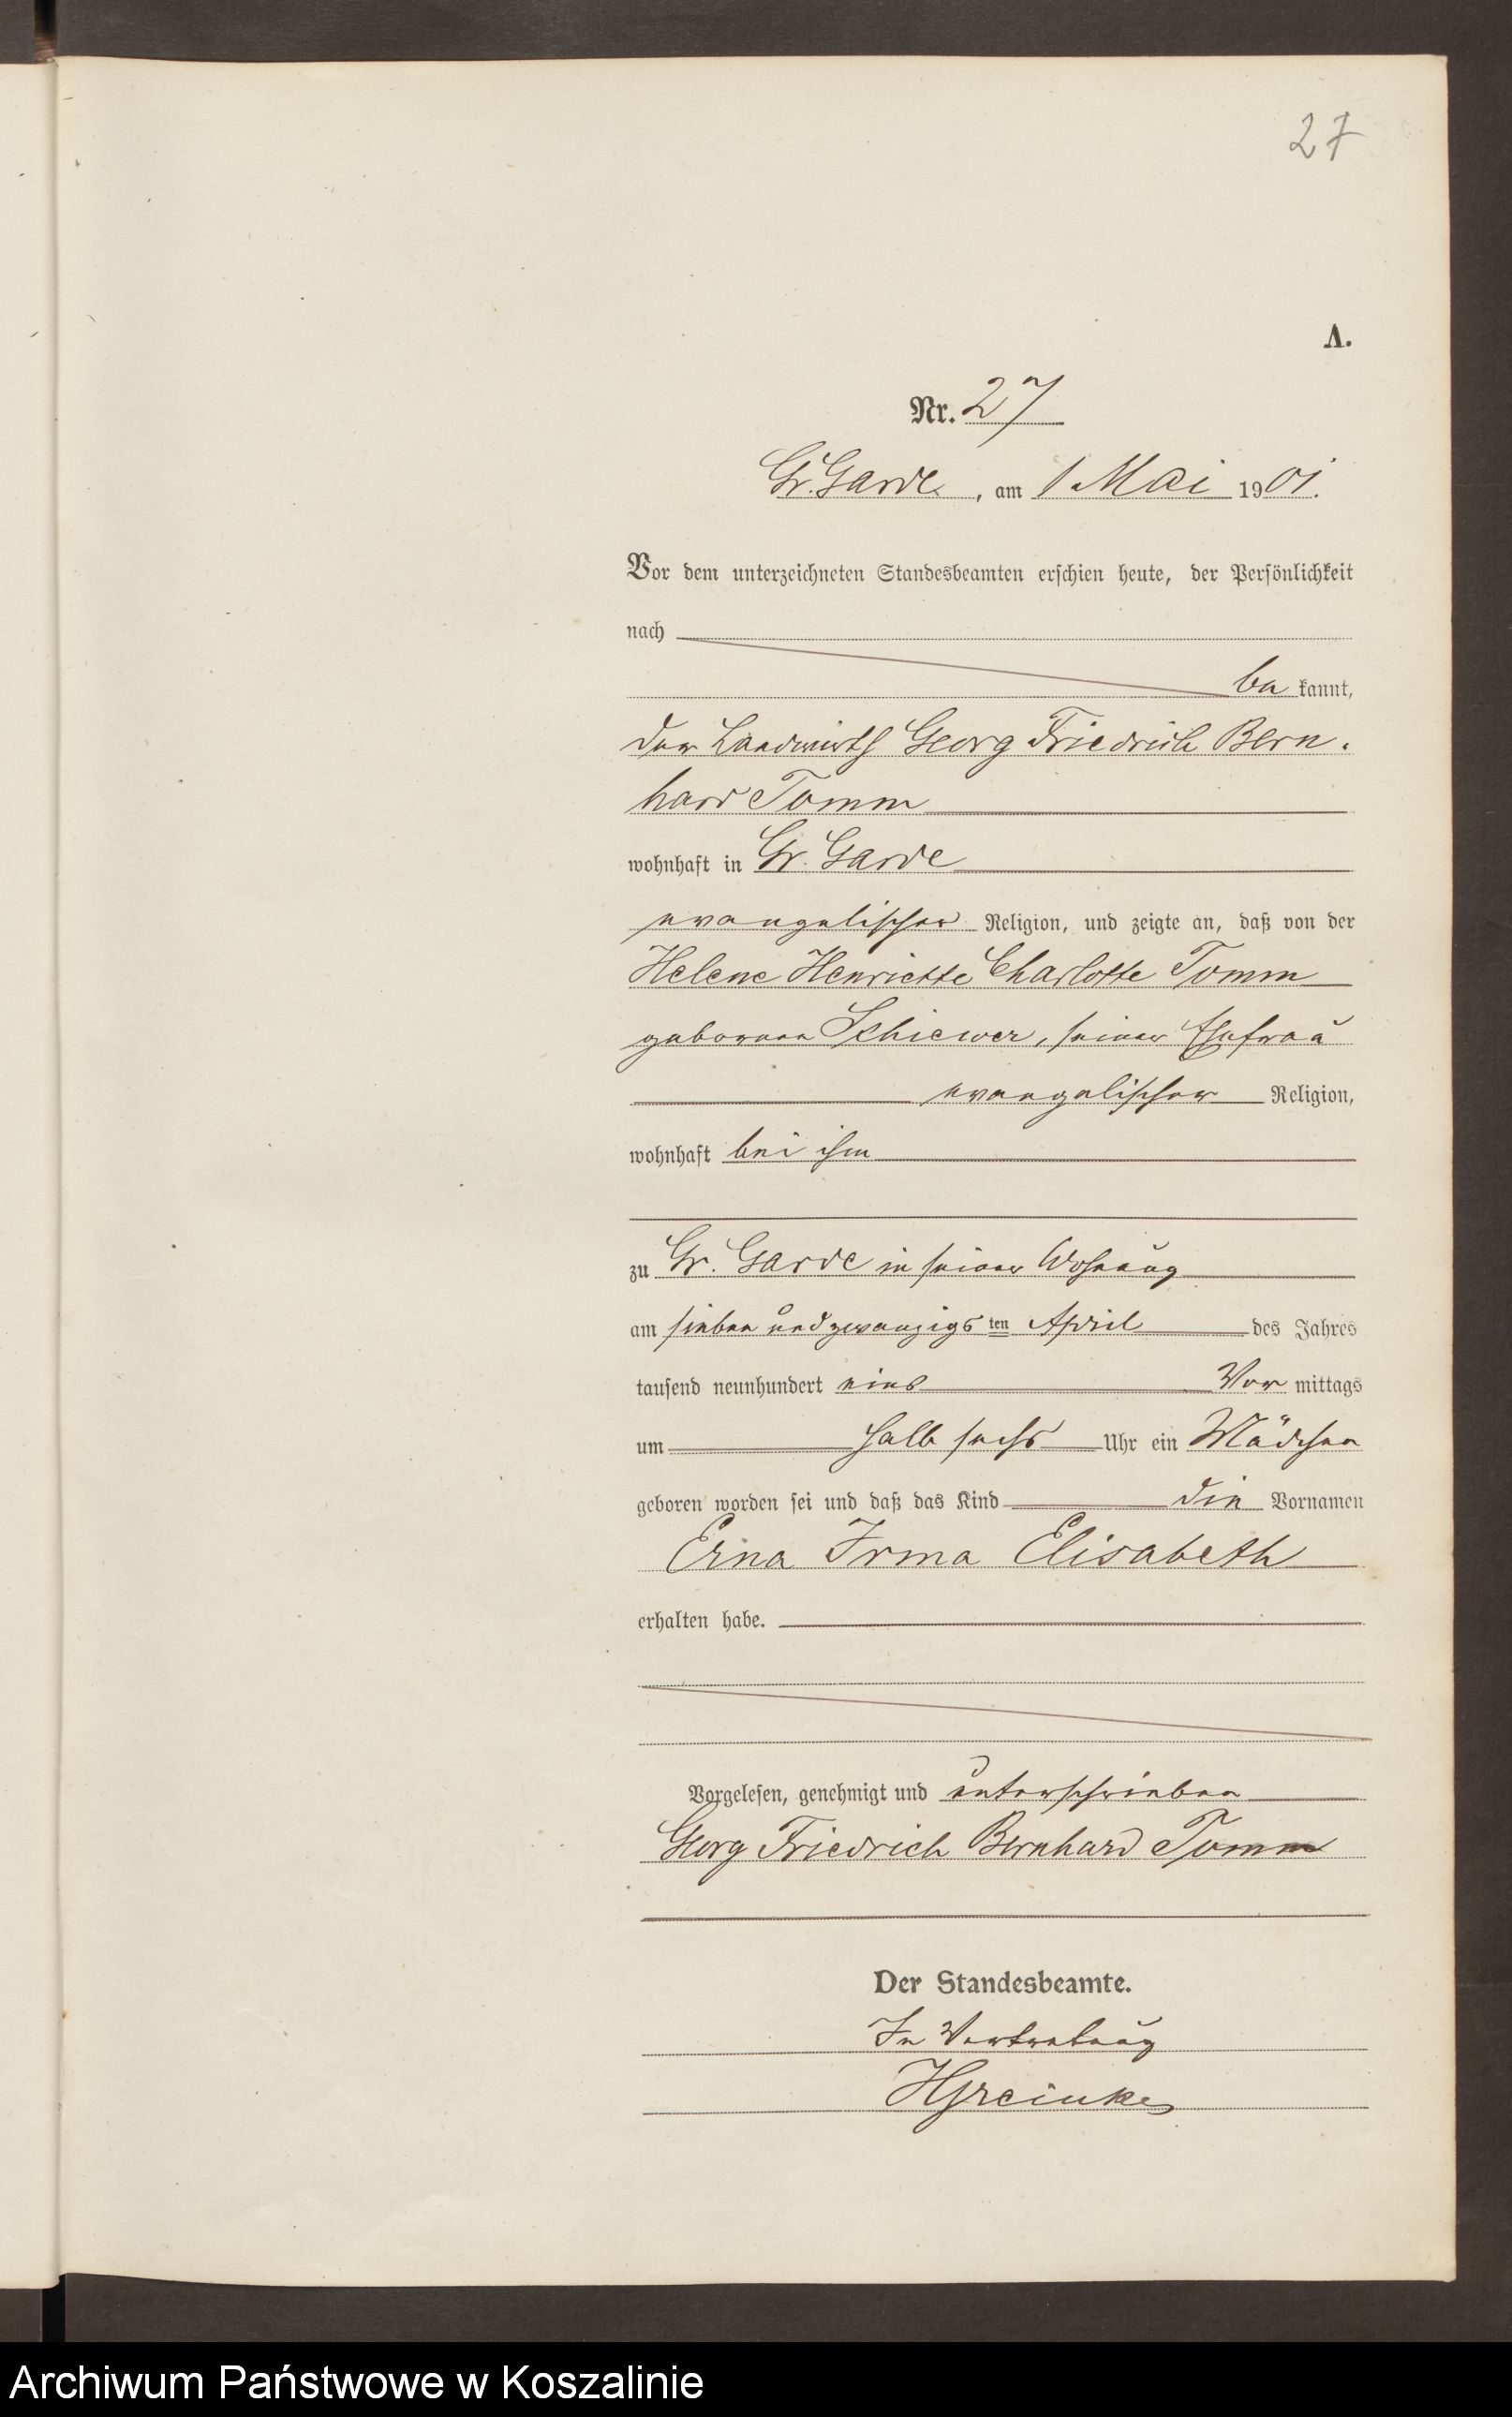 27
A.
Nr. 27
Gr. Garde, am 1 Mai 1901.
Vor dem unterzeichneten Standesbeamten erschien heute, der Persönlichkeit
nach
be kannt,
der Landwirth Georg Friedrich Bern-
hard Tomm
wohnhaft in Gr. Garde
evangelischer Religion, und zeigte an, daß von der
Helene Henriette Charlotte Tomm
geborenen Schiewer, seiner Ehefrau
evangelischer Religion,
wohnhaft bei ihm
zu Gr. Garde in seiner Wohnung
am sieben und zwanzigsten April des Jahres
tausend neunhundert eins Vor mittags
um halb sechs Uhr ein Mädchen
geboren worden sei und daß das Kind die Vornamen
Erna Irma Elisabeth
erhalten habe.
Vorgelesen, genehmigt und unterschrieben
Georg Friedrich Bernhard Tomm
Der Standesbeamte.
In Vertretung
Archiwum Państwowe w Koszalinie